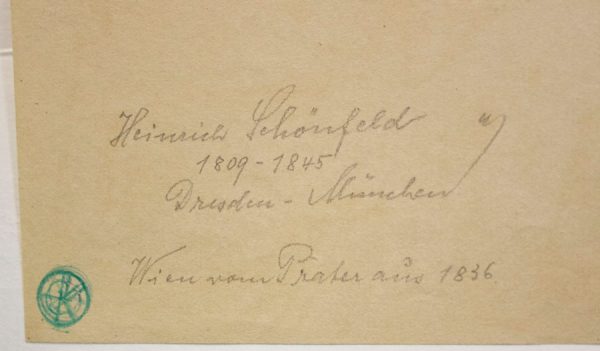 Heinrich Schönfeld
1809-1845
Dresden - München
Wien vom Prater aus 1836